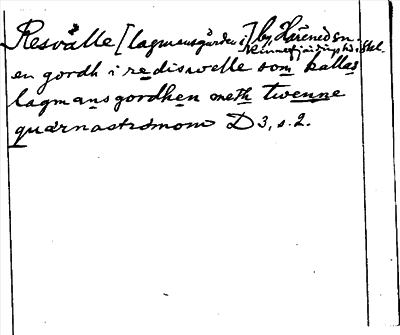 Resvälle [lagmansgården i] by, Härened sn.
Kinnefjärdings hd. Skl.
en gordh i rediswelle som kallas
lagmansgordhen meth twenne
quærnastrømom D 3, s. 2.